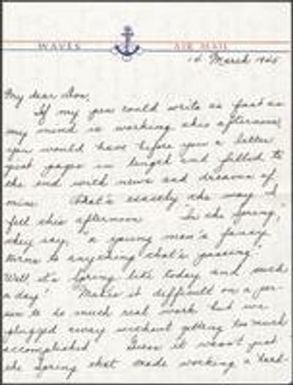 WAVES AIR MAIL
14 March 1945
My dear Don,
If my pen could write as fast as
my mind is working this afternoon,
you would have before you a letter
pages in length and filled to
the end with news and dreams of
mine. That's exactly the way I
feel this afternoon. "In the Spring,"
they say, "a young man's fancy
turns to anything that's passing."
Well it's Spring like today and such
a day! Makes it difficult on a per-
son to do much real work but we
plugged away without getting too much
accomplished. Guess it wasn't just
the Spring that made working a hard-